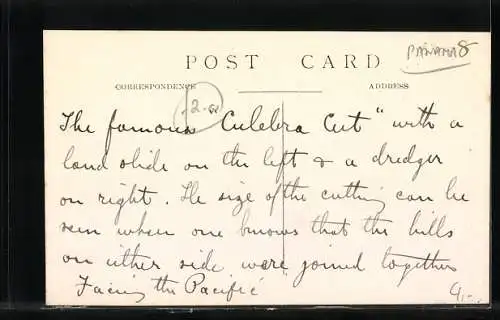 PANAMA 8
POST CARD
CORRESPONDENCE
ADDRESS
The famous Culebra Cut" with a
land slide on the left & a dredger
on right. The size of the cutting can be
seen when one knows that the hills
on either side were joined together
Facing the Pacific